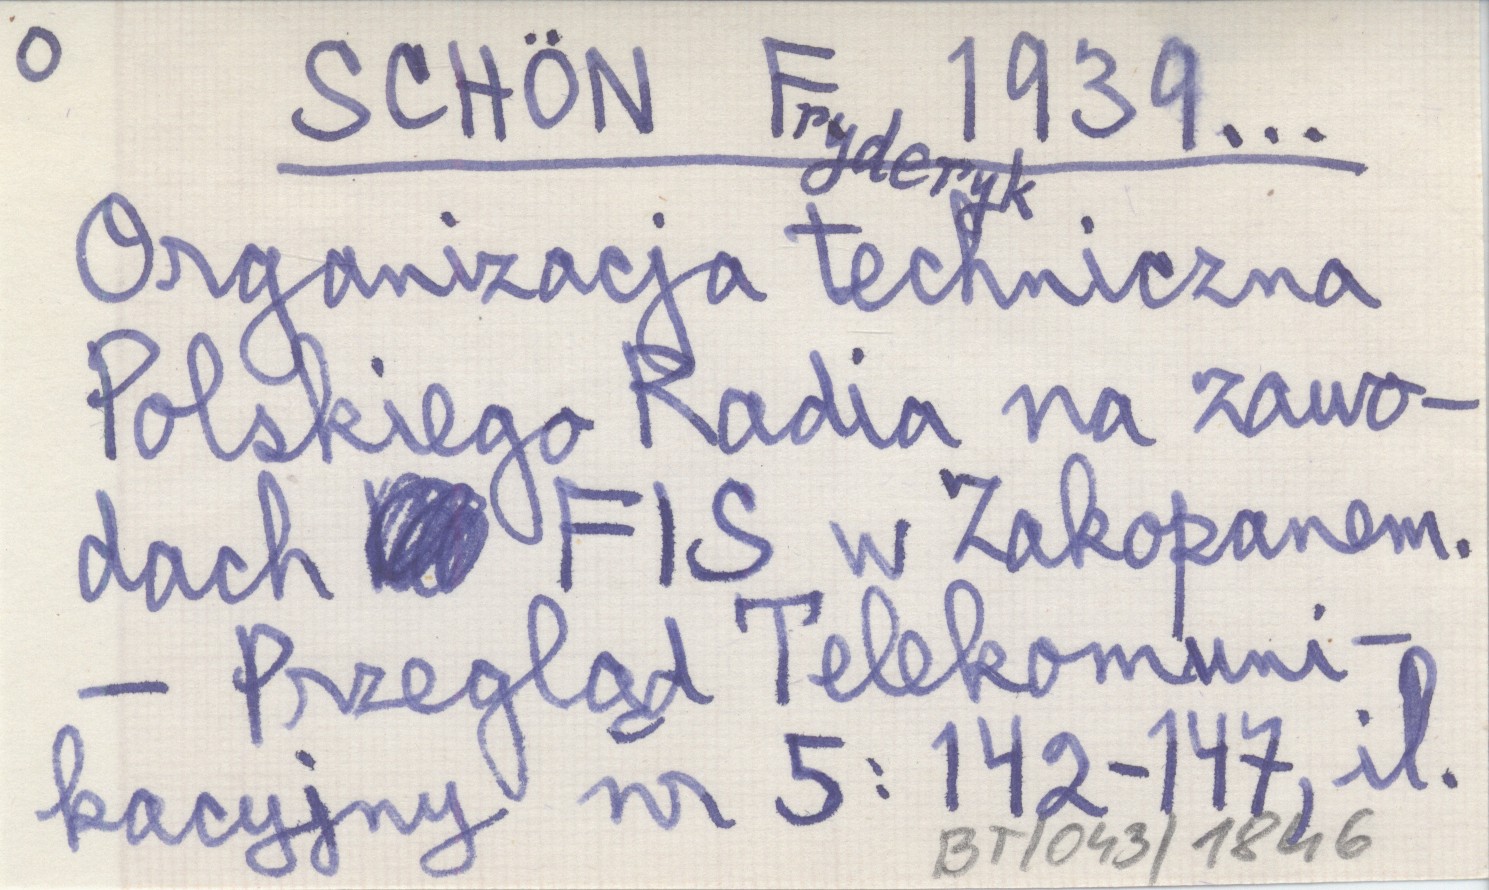 O
SCHÖN Fryderyk 1939...
Organizacja techniczna
Polskiego Radia na zawo-
dach FIS w Zakopanem.
- Przegląd Telekomuni-
kacyjny nr 5: 142-147, il.
BT/043/1846